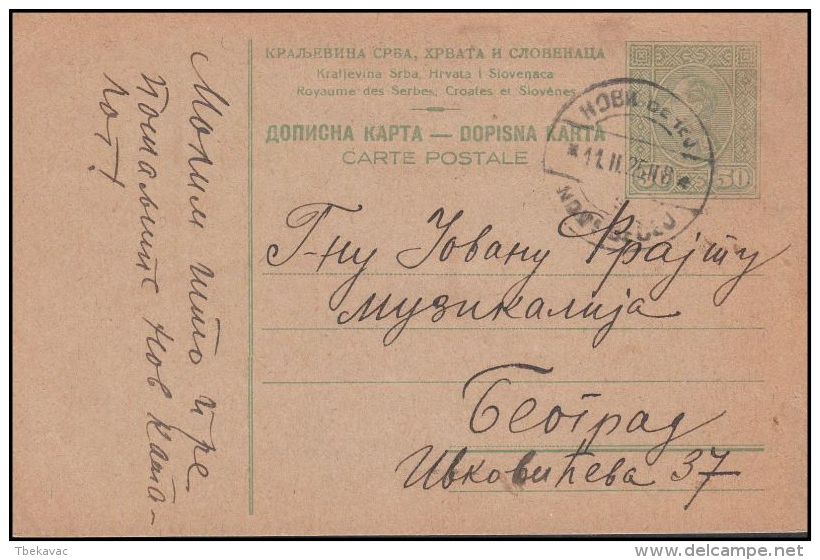 КРАЉЕВИНА СРБА, ХРВАТА И СЛОВЕНАЦА
Kraljevina Srba, Hrvata i Slovenaca
Royaume des Serbes, Croates et Slovènes
ДОПИСНА КАРТА — DOPISNA KARTA
CARTE POSTALE
НОВИ БЕЧЕЈ
11.II.25
NOVI BEČEJ
50
Г-ну Јовану Фрајту
музикалија
Београд
Ивковићева 37
Молим што пре
пошаљите нов ката-
лог!
Tbekavac
delcampe.net